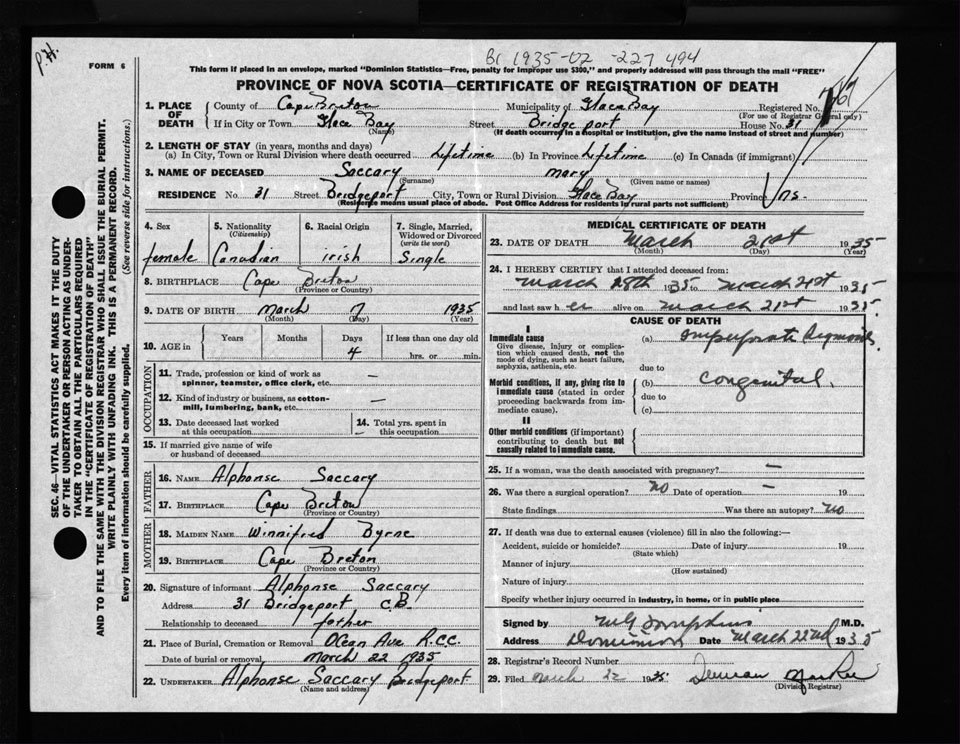 P.H.
B1 1935-02-227 494
FORM 6
This form if placed in an envelope, marked "Dominion Statistics—Free, penalty for improper use $300," and properly addressed will pass through the mail "FREE"
PROVINCE OF NOVA SCOTIA—CERTIFICATE OF REGISTRATION OF DEATH
1. PLACE OF DEATH County of Cape Breton Municipality of Glace Bay Registered No.
(For use of Registrar General only)
If in City or Town Glace Bay Street Bridgeport House No. 31
(Name) (If death occurred in a hospital or institution, give the name instead of street and number)
2. LENGTH OF STAY (in years, months and days)
(a) In City, Town or Rural Division where death occurred Lifetime (b) In Province Lifetime (c) In Canada (if immigrant)
3. NAME OF DECEASED Saccary Mary
(Surname) (Given name or names)
RESIDENCE No. 31 Street Bridgeport City, Town or Rural Division Glace Bay Province N.S.
(Residence means usual place of abode. Post Office Address for residents in rural parts not sufficient)
4. Sex 5. Nationality (Citizenship) 6. Racial Origin 7. Single, Married, Widowed or Divorced (write the word)
female Canadian irish Single
8. BIRTHPLACE Cape Breton
(Province or Country)
9. DATE OF BIRTH March 7 1935
(Month) (Day) (Year)
10. AGE in Years Months Days If less than one day old
4 hrs. or min.
OCCUPATION
11. Trade, profession or kind of work as spinner, teamster, office clerk, etc. —
12. Kind of industry or business, as cotton-mill, lumbering, bank, etc. —
13. Date deceased last worked at this occupation 14. Total yrs. spent in this occupation —
15. If married give name of wife or husband of deceased
FATHER
16. NAME Alphonse Saccary
17. BIRTHPLACE Cape Breton
(Province or Country)
MOTHER
18. MAIDEN NAME Winnifred Byrne
19. BIRTHPLACE Cape Breton
(Province or Country)
20. Signature of informant Alphonse Saccary
Address 31 Bridgeport C.B.
Relationship to deceased father
21. Place of Burial, Cremation or Removal Ocean Ave R.C.C
Date of burial or removal March 22 1935
22. UNDERTAKER Alphonse Saccary Bridgeport
(Name and address)
MEDICAL CERTIFICATE OF DEATH
23. DATE OF DEATH March 21st 1935
(Month) (Day) (Year)
24. I HEREBY CERTIFY that I attended deceased from:
March 1935 to March 21st 1935
and last saw her alive on March 21st 1935
CAUSE OF DEATH
I
Immediate cause (a) imperforate
Give disease, injury or complication which caused death, not the mode of dying, such as heart failure, asphyxia, asthenia, etc.
due to
Morbid conditions, if any, giving rise to immediate cause (stated in order proceeding backwards from immediate cause). (b) Congenital.
due to
(c)
II
Other morbid conditions (if important) contributing to death but not causally related to immediate cause.
25. If a woman, was the death associated with pregnancy? —
26. Was there a surgical operation? no Date of operation — 19
State findings Was there an autopsy? no
27. If death was due to external causes (violence) fill in also the following:—
Accident, suicide or homicide? Date of injury 19
(State which)
Manner of injury
(How sustained)
Nature of injury
Specify whether injury occurred in industry, in home, or in public place
Signed by M.D.
Address Dominion Date March 22nd 1935
28. Registrar's Record Number
29. Filed March 22 1935
(Division Registrar)
SEC. 46—VITAL STATISTICS ACT MAKES IT THE DUTY
OF THE UNDERTAKER OR PERSON ACTING AS UNDERTAKER TO OBTAIN ALL THE PARTICULARS REQUIRED
IN THE "CERTIFICATE OF REGISTRATION OF DEATH"
AND TO FILE THE SAME WITH THE DIVISION REGISTRAR WHO SHALL ISSUE THE BURIAL PERMIT.
WRITE PLAINLY WITH UNFADING INK. THIS IS A PERMANENT RECORD.
Every item of information should be carefully supplied. (See reverse side for instructions.)